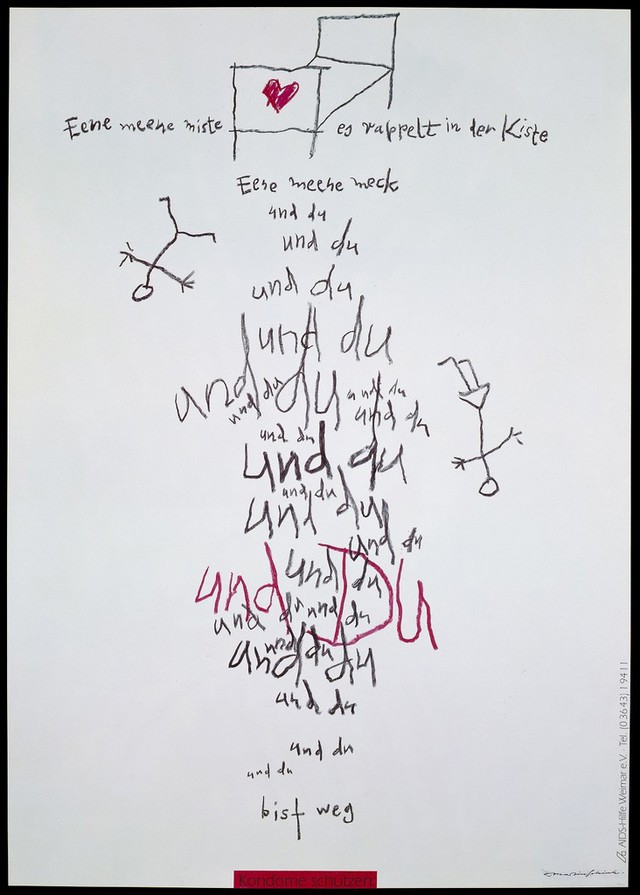 Eene meene miste es rappelt in der Kiste
Eene meene meck
und du
und du
und du
und du
und du
und du
und du
und du
und du
und du
und du
und du
und du
und Du
und du
und du
und du
und du
und du
und du
und du
und du
bist weg
Kondome schützen
AIDS-Hilfe Weimar e.V. · Tel. (0 36 43) 1 94 11